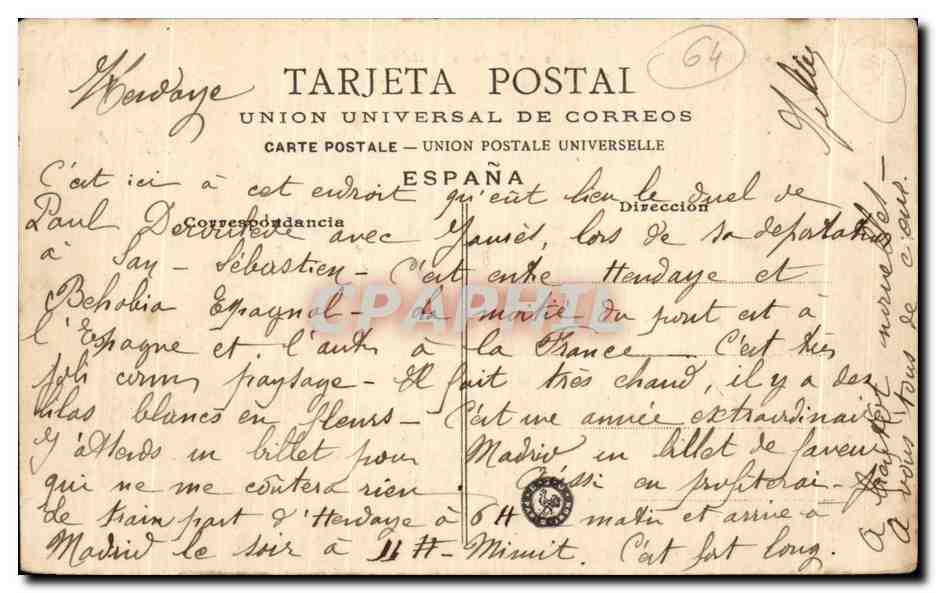 Hendaye
64
TARJETA POSTAL
UNION UNIVERSAL DE CORREOS
CARTE POSTALE — UNION POSTALE UNIVERSELLE
ESPAÑA
Correspondancia
Dirección
C'est ici à cet endroit qu'eût lieu le duel de
Paul Deroulède avec Jaurès, lors de sa deportation
à San-Sébastien - C'est entre Hendaye et
Behobia Espagnol - la moitié du pont est à
l'Espagne et l'autre à la France - C'est très
joli comme paysage - Il fait très chaud, il y a des
lilas blancs en fleurs - C'est une année extraordinaire
J'attends un billet pour Madrid un billet de faveur
qui ne me coûtera rien. Aussi en profiterai-je
Le train part d'Hendaye à 6H matin et arrive à
Madrid le soir à 11H - Minuit. C'est fort long.
A bientôt nouvelles -
A vous tous de cœur.
CPAPHIL